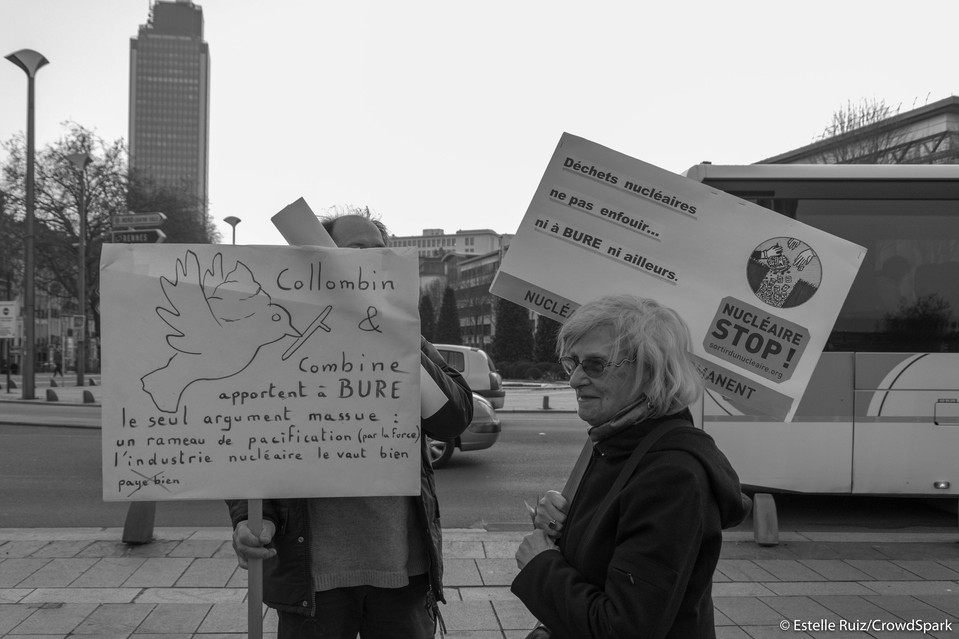 Collombin
&
Combine
apportent à BURE
le seul argument massue :
un rameau de pacification (par la force)
l'industrie nucléaire le vaut bien
paye bien
Déchets nucléaires
ne pas enfouir...
ni à BURE ni ailleurs.
NUCLÉAIRE
STOP !
sortirdunucleaire.org
NUCLÉ
MANENT
© Estelle Ruiz/CrowdSpark